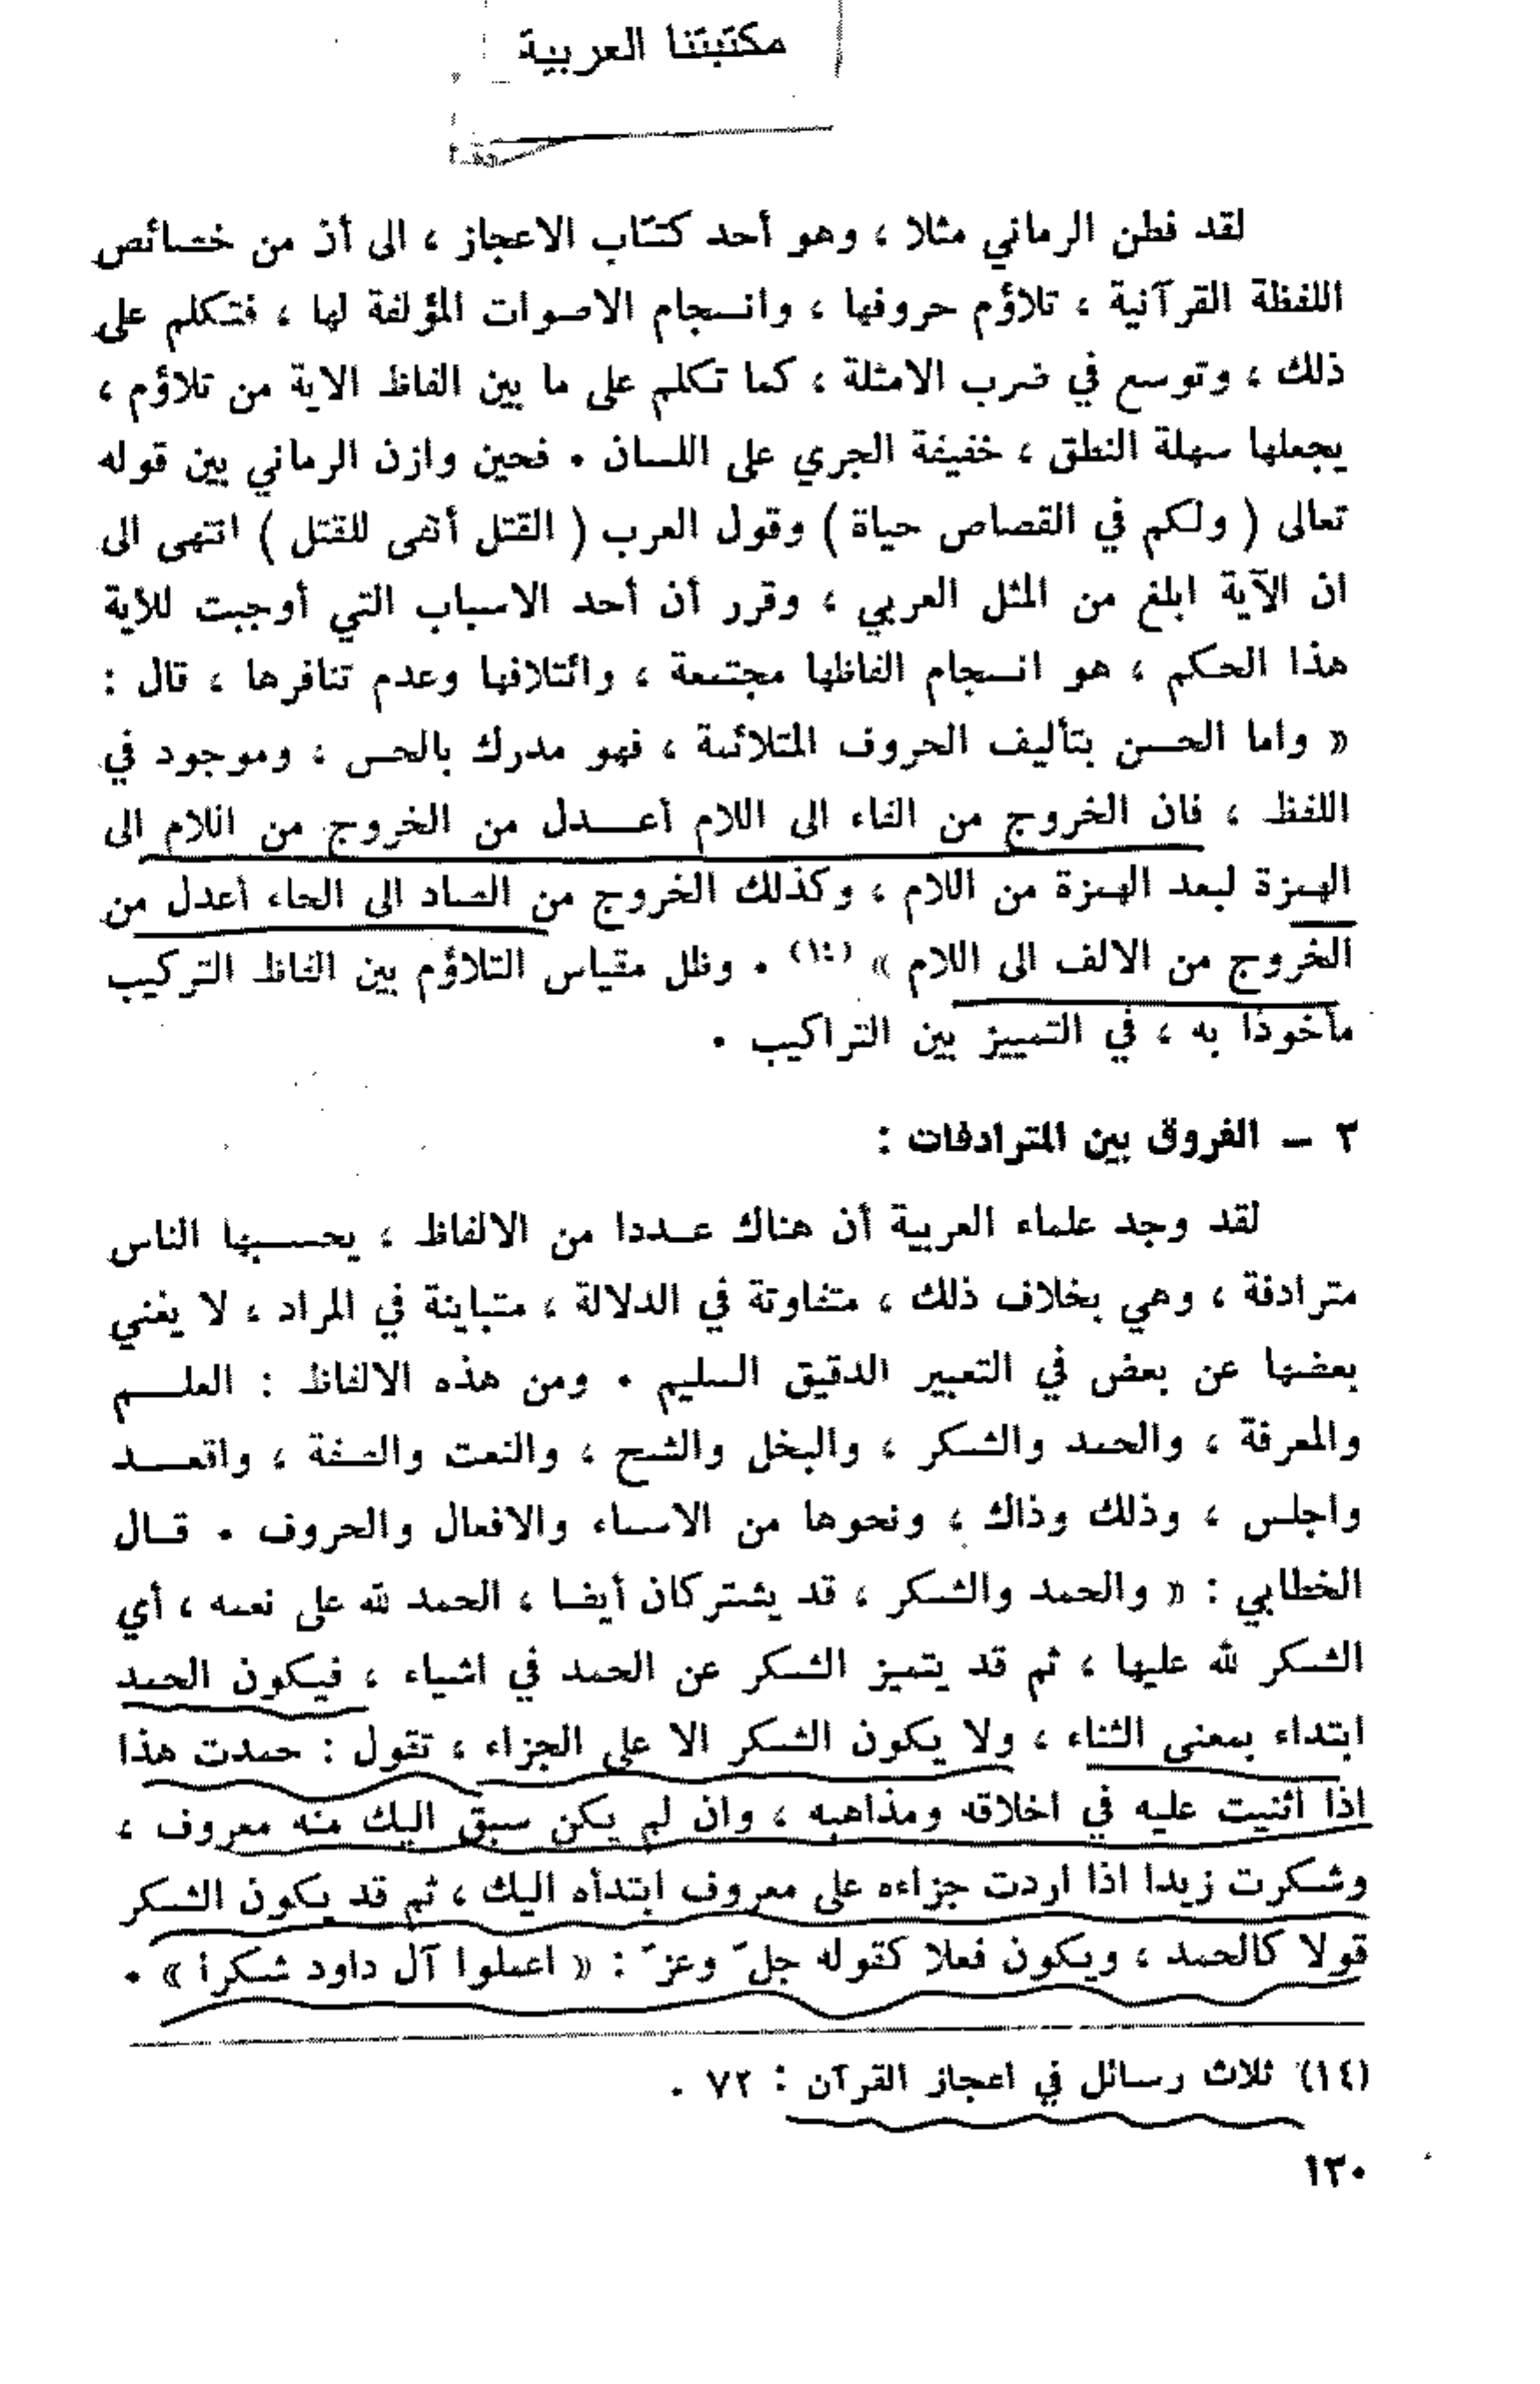 مكتبتنا العربية
لقد فطن الرماني مثلا ، وهو أحد كتّاب الاعجاز ، الى أن من خصائص
اللفظة القرآنية ، تلاؤم حروفها ، وانسجام الاصوات المؤلفة لها ، فتكلم على
ذلك ، وتوسع في ضرب الامثلة ، كما تكلم على ما بين الفاظ الاية من تلاؤم ،
يجعلها سهلة النطق ، خفيفة الجري على اللسان . فحين وازن الرماني بين قوله
تعالى ( ولكم في القصاص حياة ) وقول العرب ( القتل أنفى للقتل ) انتهى الى
ان الآية ابلغ من المثل العربي ، وقرر أن أحد الاسباب التي أوجبت للآية
هذا الحكم ، هو انسجام الفاظها مجتمعة ، وائتلافها وعدم تنافرها ، قال :
« واما الحسن بتأليف الحروف المتلائمة ، فهو مدرك بالحس ، وموجود في
اللفظ ، فان الخروج من الفاء الى اللام أعدل من الخروج من اللام الى
الهمزة لبعد الهمزة من اللام ، وكذلك الخروج من الصاد الى الحاء أعدل من
الخروج من الالف الى اللام » (١٤) . وظل مقياس التلاؤم بين الفاظ التركيب
مأخوذا به ، في التمييز بين التراكيب .
٣ – الفروق بين المترادفات :
لقد وجد علماء العربية أن هناك عددا من الالفاظ ، يحسبها الناس
مترادفة ، وهي بخلاف ذلك ، متفاوتة في الدلالة ، متباينة في المراد ، لا يغني
بعضها عن بعض في التعبير الدقيق السليم . ومن هذه الالفاظ : العلم
والمعرفة ، والحمد والشكر ، والبخل والشح ، والنعت والصفة ، واقعد
واجلس ، وذلك وذاك ، ونحوها من الاسماء والافعال والحروف . قال
الخطابي : « والحمد والشكر ، قد يشتركان أيضا ، الحمد لله على نعمه ، أي
الشكر لله عليها ، ثم قد يتميز الشكر عن الحمد في اشياء ، فيكون الحمد
ابتداء بمعنى الثناء ، ولا يكون الشكر الا على الجزاء ، تقول : حمدت هذا
اذا أثنيت عليه في اخلاقه ومذاهبه ، وان لم يكن سبق اليك منه معروف ،
وشكرت زيدا اذا اردت جزاءه على معروف ابتدأه اليك ، ثم قد يكون الشكر
قولا كالحمد ، ويكون فعلا كقوله جلّ وعزّ : « اعملوا آل داود شكراً » .
(١٤) ثلاث رسائل في اعجاز القرآن : ٧٢ .
١٣٠